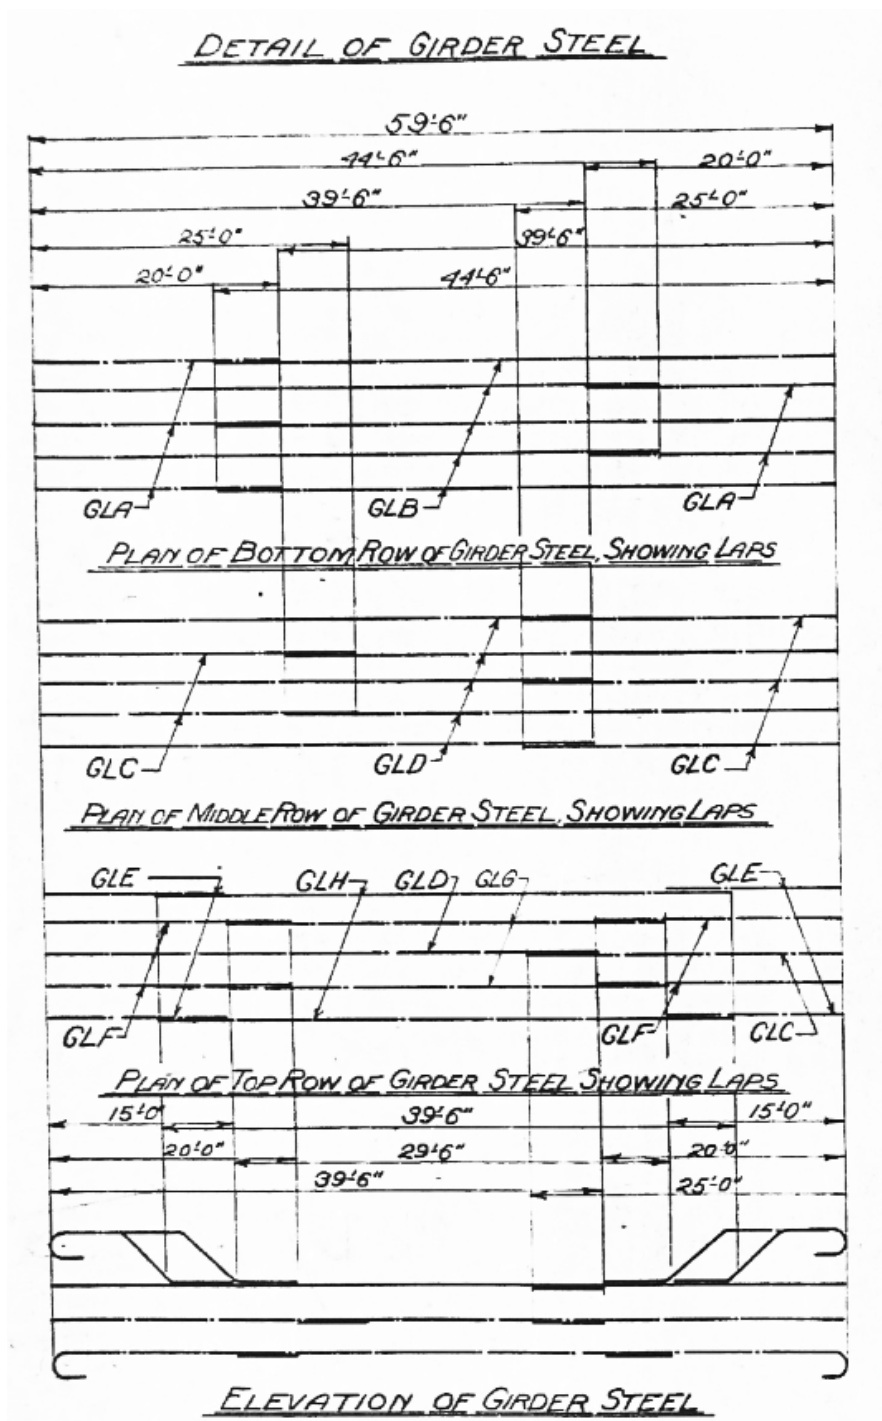 DETAIL OF GIRDER STEEL
59'-6"
44'-6" 20'-0"
39'-6" 25'-0"
25'-0" 39'-6"
20'-0" 44'-6"
GLA GLB GLA
PLAN OF BOTTOM ROW OF GIRDER STEEL, SHOWING LAPS
GLC GLD GLC
PLAN OF MIDDLE ROW OF GIRDER STEEL, SHOWING LAPS
GLE GLH GLD GLG GLE
GLF GLF GLC
PLAN OF TOP ROW OF GIRDER STEEL SHOWING LAPS
15'-0" 39'-6" 15'-0"
20'-0" 29'-6" 20'-0"
39'-6" 25'-0"
ELEVATION OF GIRDER STEEL